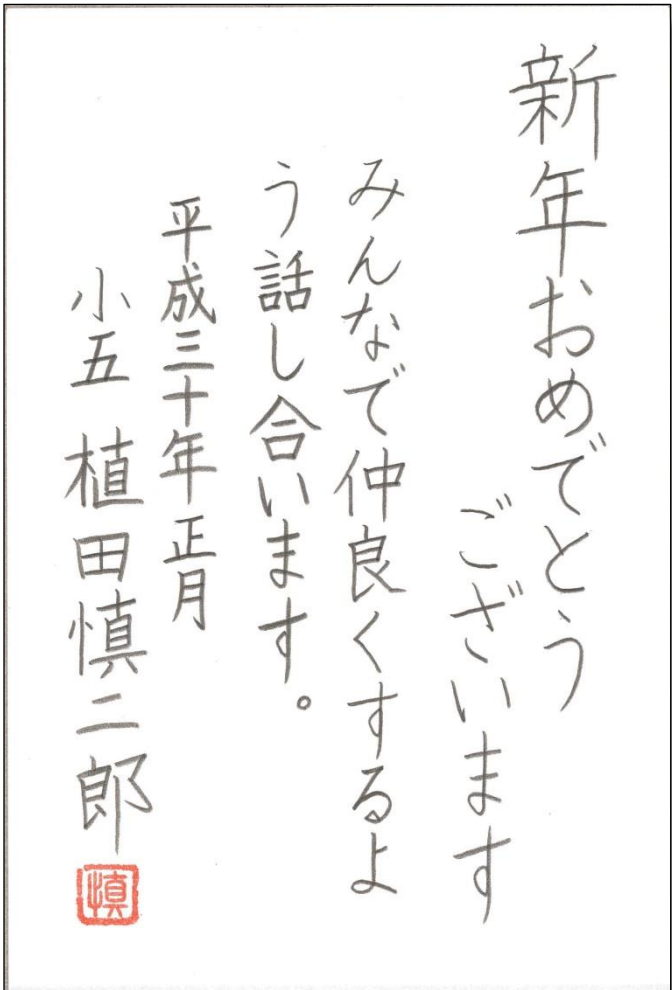 新年おめでとう
ございます
みんなで仲良くするよ
う話し合います。
平成三十年 正月
小五 植田慎二郎
慎